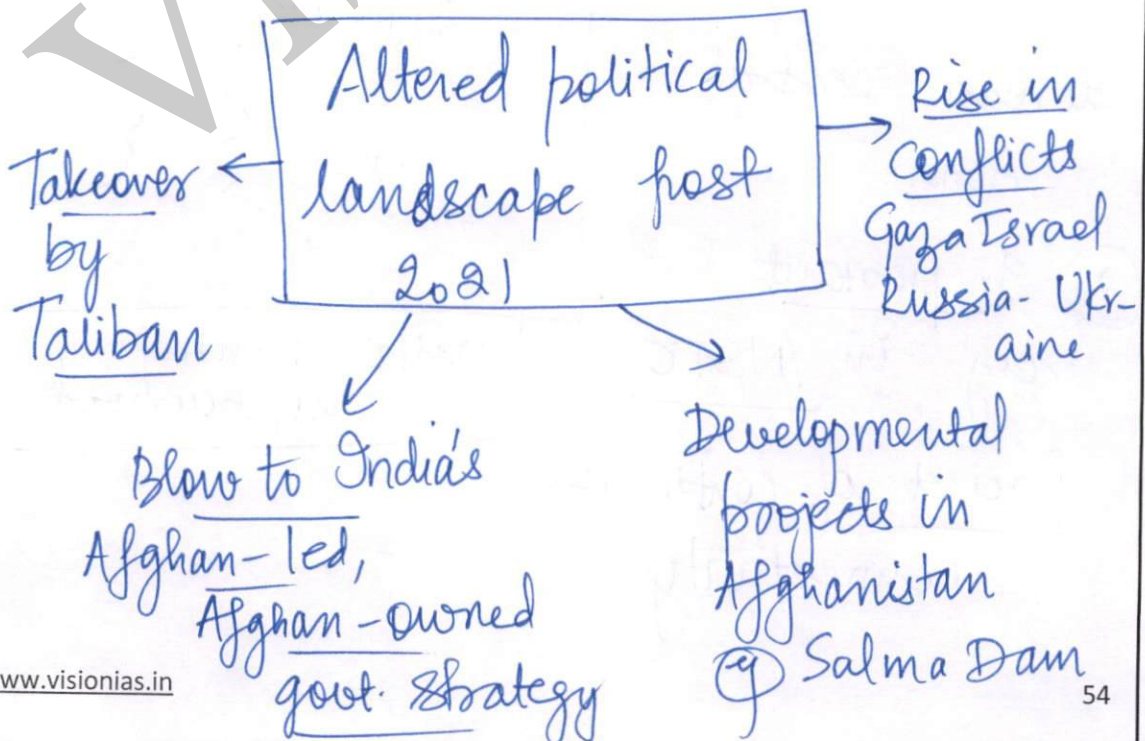 Altered political
landscape post
2021
Takeover
by
Taliban
Rise in
conflicts
Gaza Israel
Russia - Ukr-
aine
Blow to India's
Afghan-led,
Afghan-owned
govt. strategy
Developmental
projects in
Afghanistan
eg Salma Dam
www.visionias.in
54